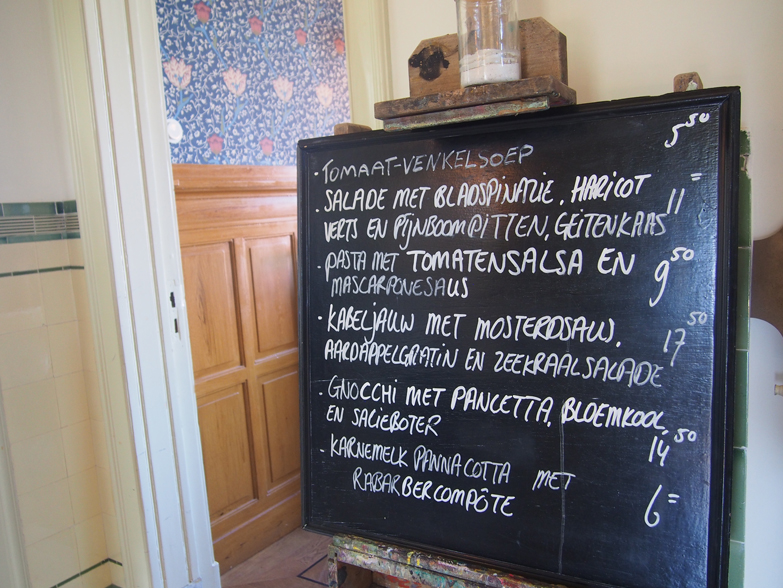 · TOMAAT-VENKELSOEP 5⁵⁰
· SALADE MET BLADSPINAZIE, HARICOT
VERTS EN PIJNBOOMPITTEN, GEITENKAAS 11=
· PASTA MET TOMATENSALSA EN
MASCARPONESAUS 9⁵⁰
· KABELJAUW MET MOSTERDSAUS,
AARDAPPELGRATIN EN ZEEKRAALSALADE 17⁵⁰
· GNOCCHI MET PANCETTA, BLOEMKOOL,
EN SALIEBOTER 14⁵⁰
· KARNEMELK PANNACOTTA MET
RABARBERCOMPÔTE 6=